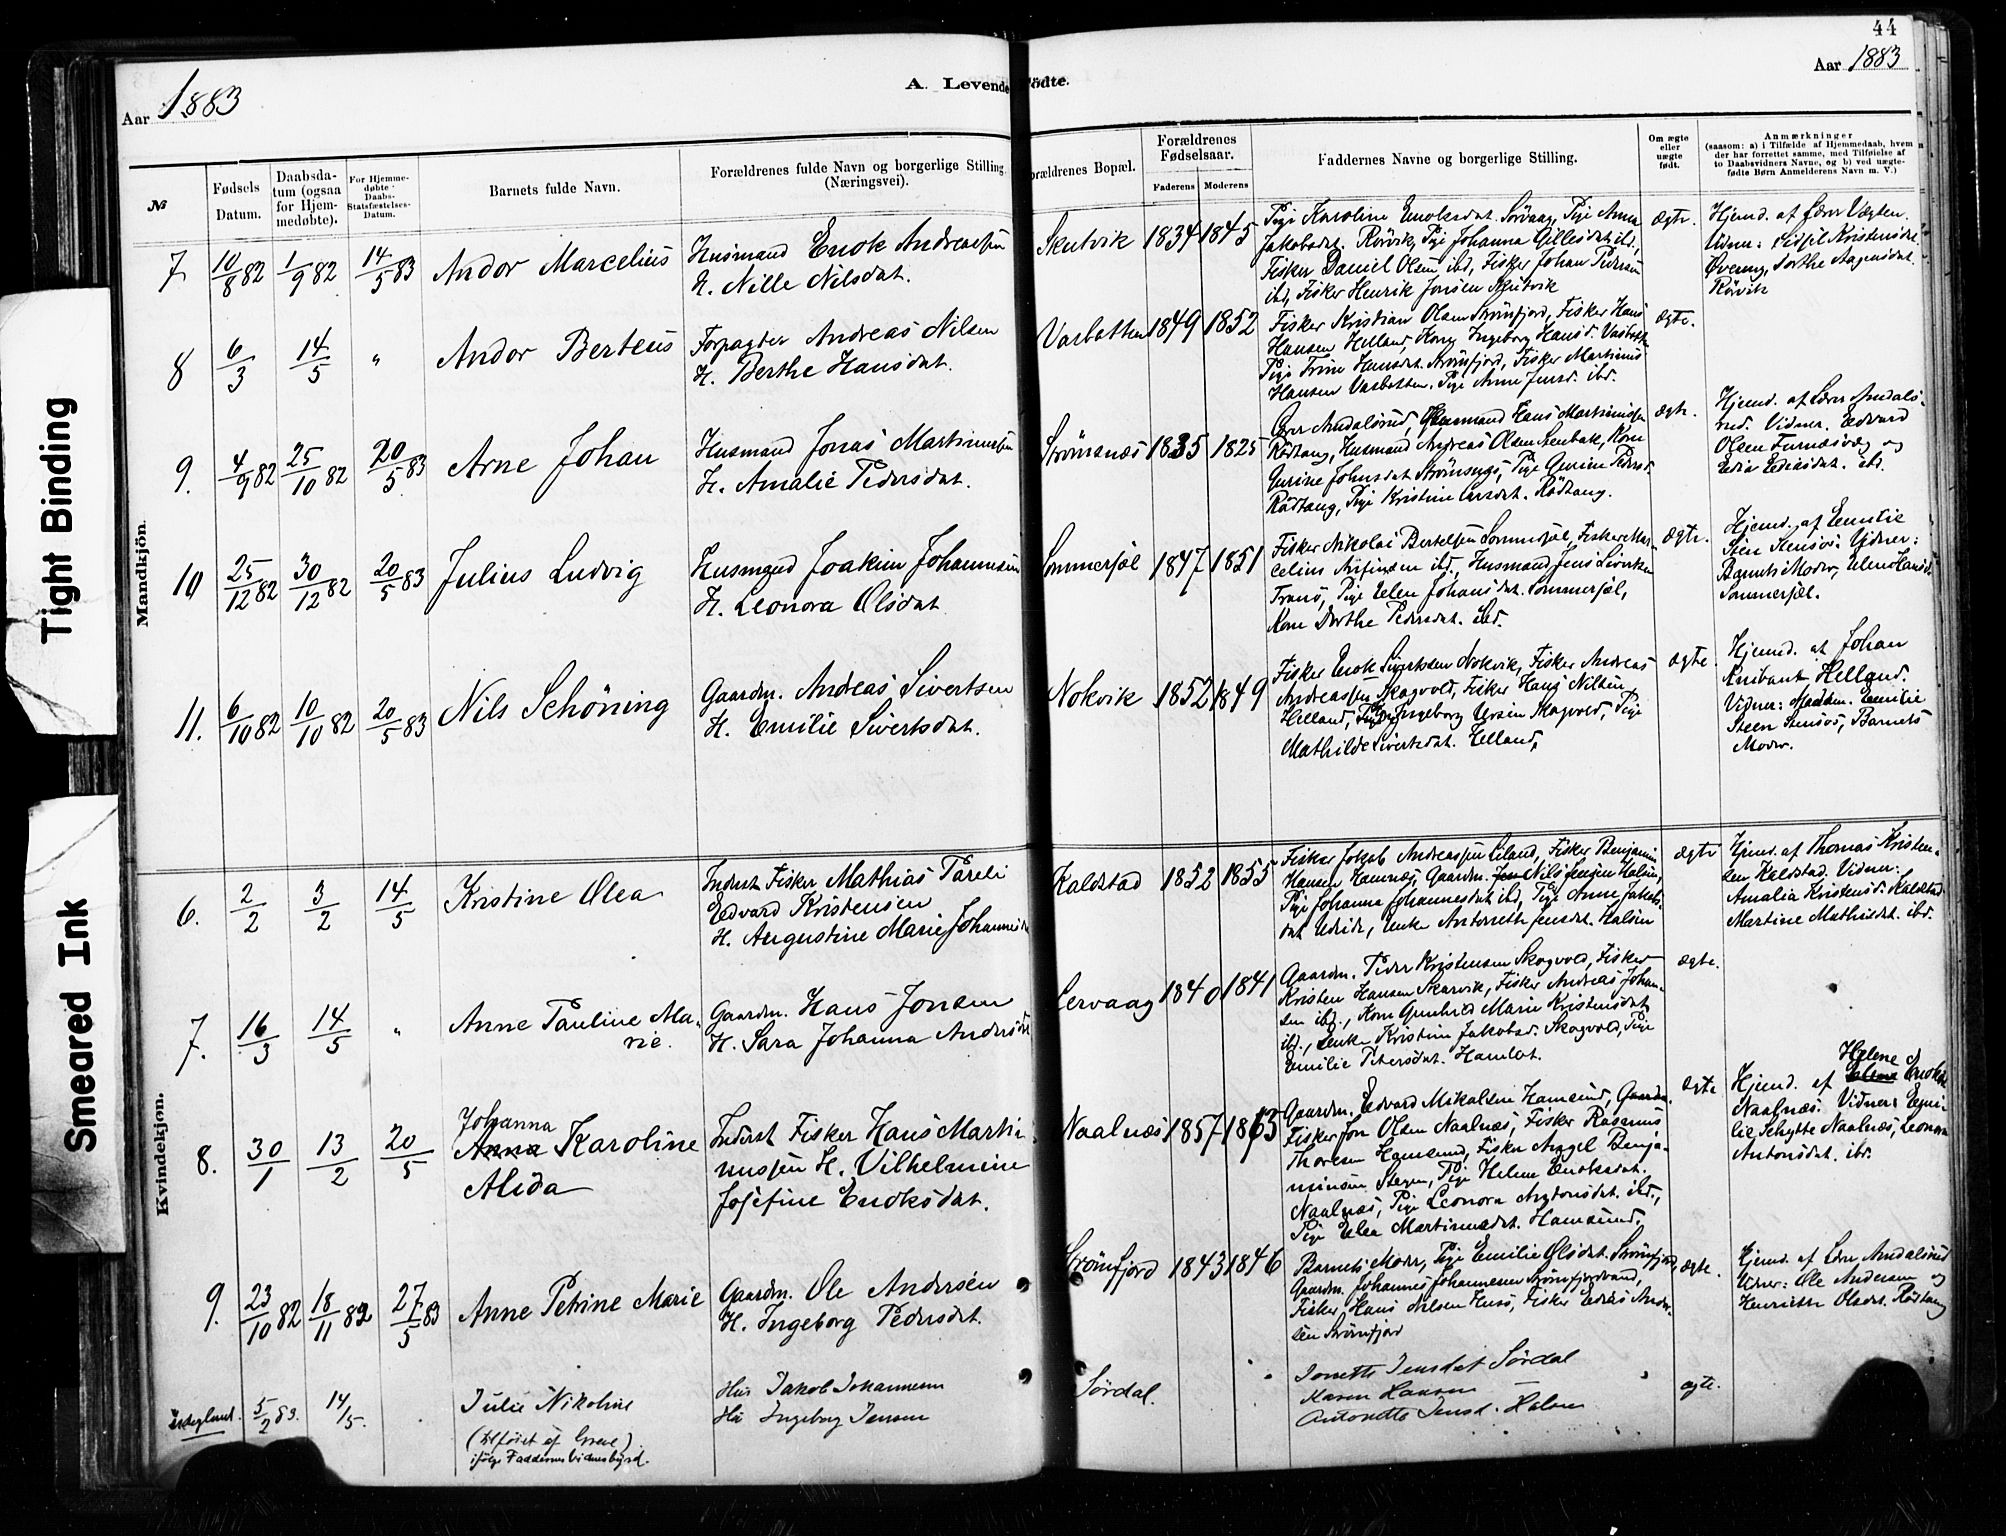 44
Aar 1883
Aar 1883
A. Levende fødte.
Tight Binding
Smeared Ink
№
Fødsels Datum.
Daabsdatum (ogsaa for Hjemmedøbte).
For Hjemmedøbte Daabs-Statsfæstelses-Datum.
Barnets fulde Navn.
Forældrenes fulde Navn og borgerlige Stilling
(Næringsvei).
Forældrenes Bopæl.
Forældrenes Fødselsaar.
Faderens Moderens
Faddernes Navne og borgerlige Stilling.
Om ægte eller uægte født.
Anmærkninger
(saasom: a) i Tilfælde af Hjemmedaab, hvem
der har forrettet samme, med Tilføielse af
to Daabsvidners Navne, og b) ved uægte-
fødte Børn Anmelderens Navn m. V.)
Mandkjön.
7 10/8 82 1/9 82 14/5 83 Andor Marcelius
Husmand Enok Andreassen
H. Nille Nilsdat.
Skutvik 1834 1845
Pige Karoline Enoksdat. Sørvaag, Pige Anna
Jakobsdat. Rørvik, Pige Johanna Gillesdat ibd,
Fisker Daniel Olsen ibd, Fisker Johan Pedersen
ibd, Fisker Henrik Jonsen Skutvik
ægte.
Hjemd. af Lærer Vegten.
Vidner: Sidsil Kristensdat.
Øveraag, Dorthe Aagesdat.
Rørvik
8 6/3 14/5 " Andor Berteus
Forpagter Andreas Nilsen
H. Berthe Hansdat.
Vasbotten 1849 1852
Fisker Kristian Olsen Strømfjord, Fisker Hans
Hansen Helland, Kone Ingeborg Hansd. Vasbotten
Pige Trine Hansdat. Strømfjord, Fisker Martinus
Hansen Vasbotten, Pige Anne Jensd. ibd.
ægte.
9. 4/9 82 25/10 82 20/5 83 Arne Johan
Husmand Jonas Martinussen
H. Amalie Pedersdat.
Strømsnæs 1835 1825
Lærer Andalsrud, Husmand Hans Martinussen
Rødtang, Husmand Andreas Olsen Leubak, Kone
Gurine Johnsdat Strømsnæs, Pige Gurine Pedersd.
Rødtang, Pige Kristine Larsdat. Rødtang.
ægte.
Hjemd. af Lærer Andals-
rud. Vidner. Edvard
Olsen Furnæsvæg og
Edia Ediasdat. ibd.
10 25/12 82 30/12 82 20/5 83 Julius Ludvig
Husmand Joakim Johannesen
H. Leonora Olsdat
Sommersæl 1847 1851
Fisker Nikolai Bertelsen Sommersæl, Fisker Mar-
celius Arfinsen ibd., Husmand Jens Sivertsen
Tranø, Pige Elen Johansdat. Sommersæl,
Kone Dorthe Pedersdat. ibd.
ægte.
Hjemd. af Emilie
Steen Stensøs: Vidner:
Barnets Moder, Elen Hansd.
Sommersæl.
11. 6/10 82 10/10 82 20/5 83 Nils Schöning
Gaardm. Andreas Sivertsen
H. Emilie Sivertsdat.
Nokvik 1852 1849
Fisker Enok Sivertsen Nokvik, Fisker Andreas
Andreassen Skogvold, Fisker Hans Nilsen
Helland, Ingeborg Ursin Skogvold, Pige
Mathilde Sivertsdat. Helland,
ægte.
Hjemd. af Johan
Knibant Helland.
Vidner: Madam. Emilie
Steen Stensøs, Barnets
Moder.
Kvindekjøn.
6. 2/2 3/2 14/5 Kristine Olea
Inderst Fisker Mathias Pareli
Edvard Kristensen
H. Augustine Marie Johannesd.
Kaldstad 1852 1855
Fisker Jokob Andreassen Eiland, Fisker Benjamin
Hansen Hamnæs, Gaardm. Nils Jensen Halsen
Pige Johanna Johannesdat ibd, Pige Anne Jakobs-
dat Udside, Enke Antonette Jensdat. Halsen
ægte
Hjemd. af Thomas Kristen-
sen Kaldstad. Vidner:
Amalia Kristensd. Kaldstad
Martine Mathisdat. ibd.
7. 16/3 14/5 " Anne Pauline Ma-
rie.
Gaardm. Hans Jonsen
H. Sara Johanna Andersd.
Lervaag 1840 1841
Gaardm. Peder Kristensen Skogvold, Fisker
Kristen Hansen Skarvik, Fisker Andreas Johan-
sen ibd., Kone Gunhild Marie Kristensdat
ibd., Enke Kristine Jakobsd. Skogvold, Pige
Emilie Petersdat. Hamlot.
ægte.
8. 30/1 13/2 20/5
Johanna
Anna Karoline
Alida
Inderst Fisker Hans Marti-
nussen H. Vilhelmine
Josefine Enoksdat.
Naalnæs 1857 1863
Gaardm. Edvard Mikalsen Hamsund,
Fisker Jon Olsen Naalnæs, Fisker Rasmus
Thoresen Hamsund, Fisker Angel Benja-
minsen Stegen, Pige Helene Enoksdat.
Naalnæs, Pige Leonora Antonsdat. ibd.,
Pige Elea Martinusdat. Hamsund.
ægte
Hjemd. af Helene Enoksd.
Naalnæs. Vidner: Emi-
lie Schytte Naalnæs, Leonora
Antonsdat. ibd.
9. 23/10 82 18/11 82 27/5 83 Anne Petrine Marie
Gaardm. Ole Andersen
H. Ingeborg Pedersdat.
Strømfjord 1843 1846
Barnets Moder, Pige Emilie Olsdat. Strømfjord,
Gaardm. Johannes Johannesen Strømfjordvand,
Fisker Hans Nilsen Husø, Fisker Edias Ander-
sen Strømfjord
ægte.
Hjemd. af Lærer Andalsrud
Vidner: Ole Andersen og
Henriette Olsdat. Rødtang
5/2 83. 14/5. Julie Nikoline
(tilføiet af
ifølge Faddernes Vidnesbyrd.
Hus Jakob Johannesen
Hu Ingeborg Jensen
Sördal.
Jonette Jensdat Sördal
Maren Hansen
Antonette Jensd. Halsen
ægte.